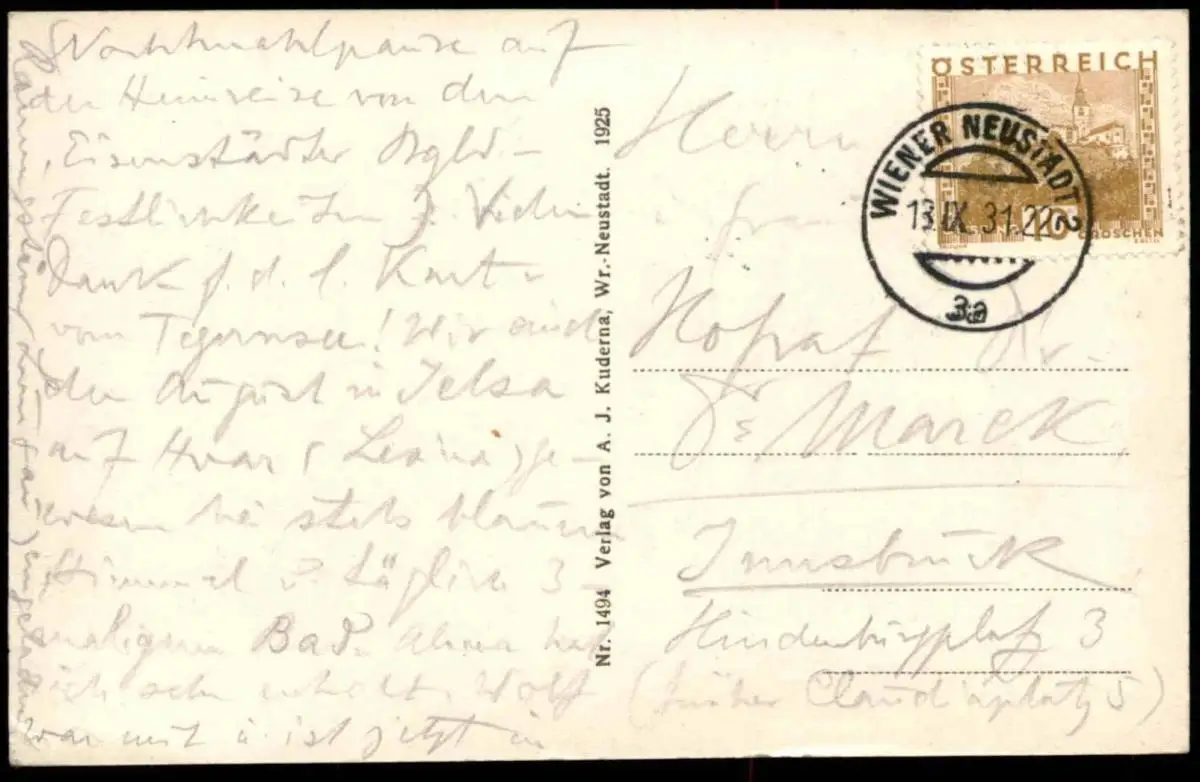 Nachtmahlpause auf
der Heimreise von dem
Eisenstädter Bgld-
Festl
Dank f. d. l. Karte
vom Tegernsee! Wir sind
den August in Jelsa
auf Hvar (Lesina) ge-
wesen bei stets blauem
Himmel u. täglich 3-
maligem Bad. Alma hat
sich sehr erholt. Wolf
war mit u. ist jetzt in
Nr. 1494 Verlag von A. J. Kuderna, Wr.-Neustadt. 1925
ÖSTERREICH
GROSCHEN
WIENER NEUSTADT 2
13.IX.31.22
3a
Herrn
Hofrat Dr.
Marek
Innsbruck
Hindenburgplatz 3
(früher Claudiaplatz 5)